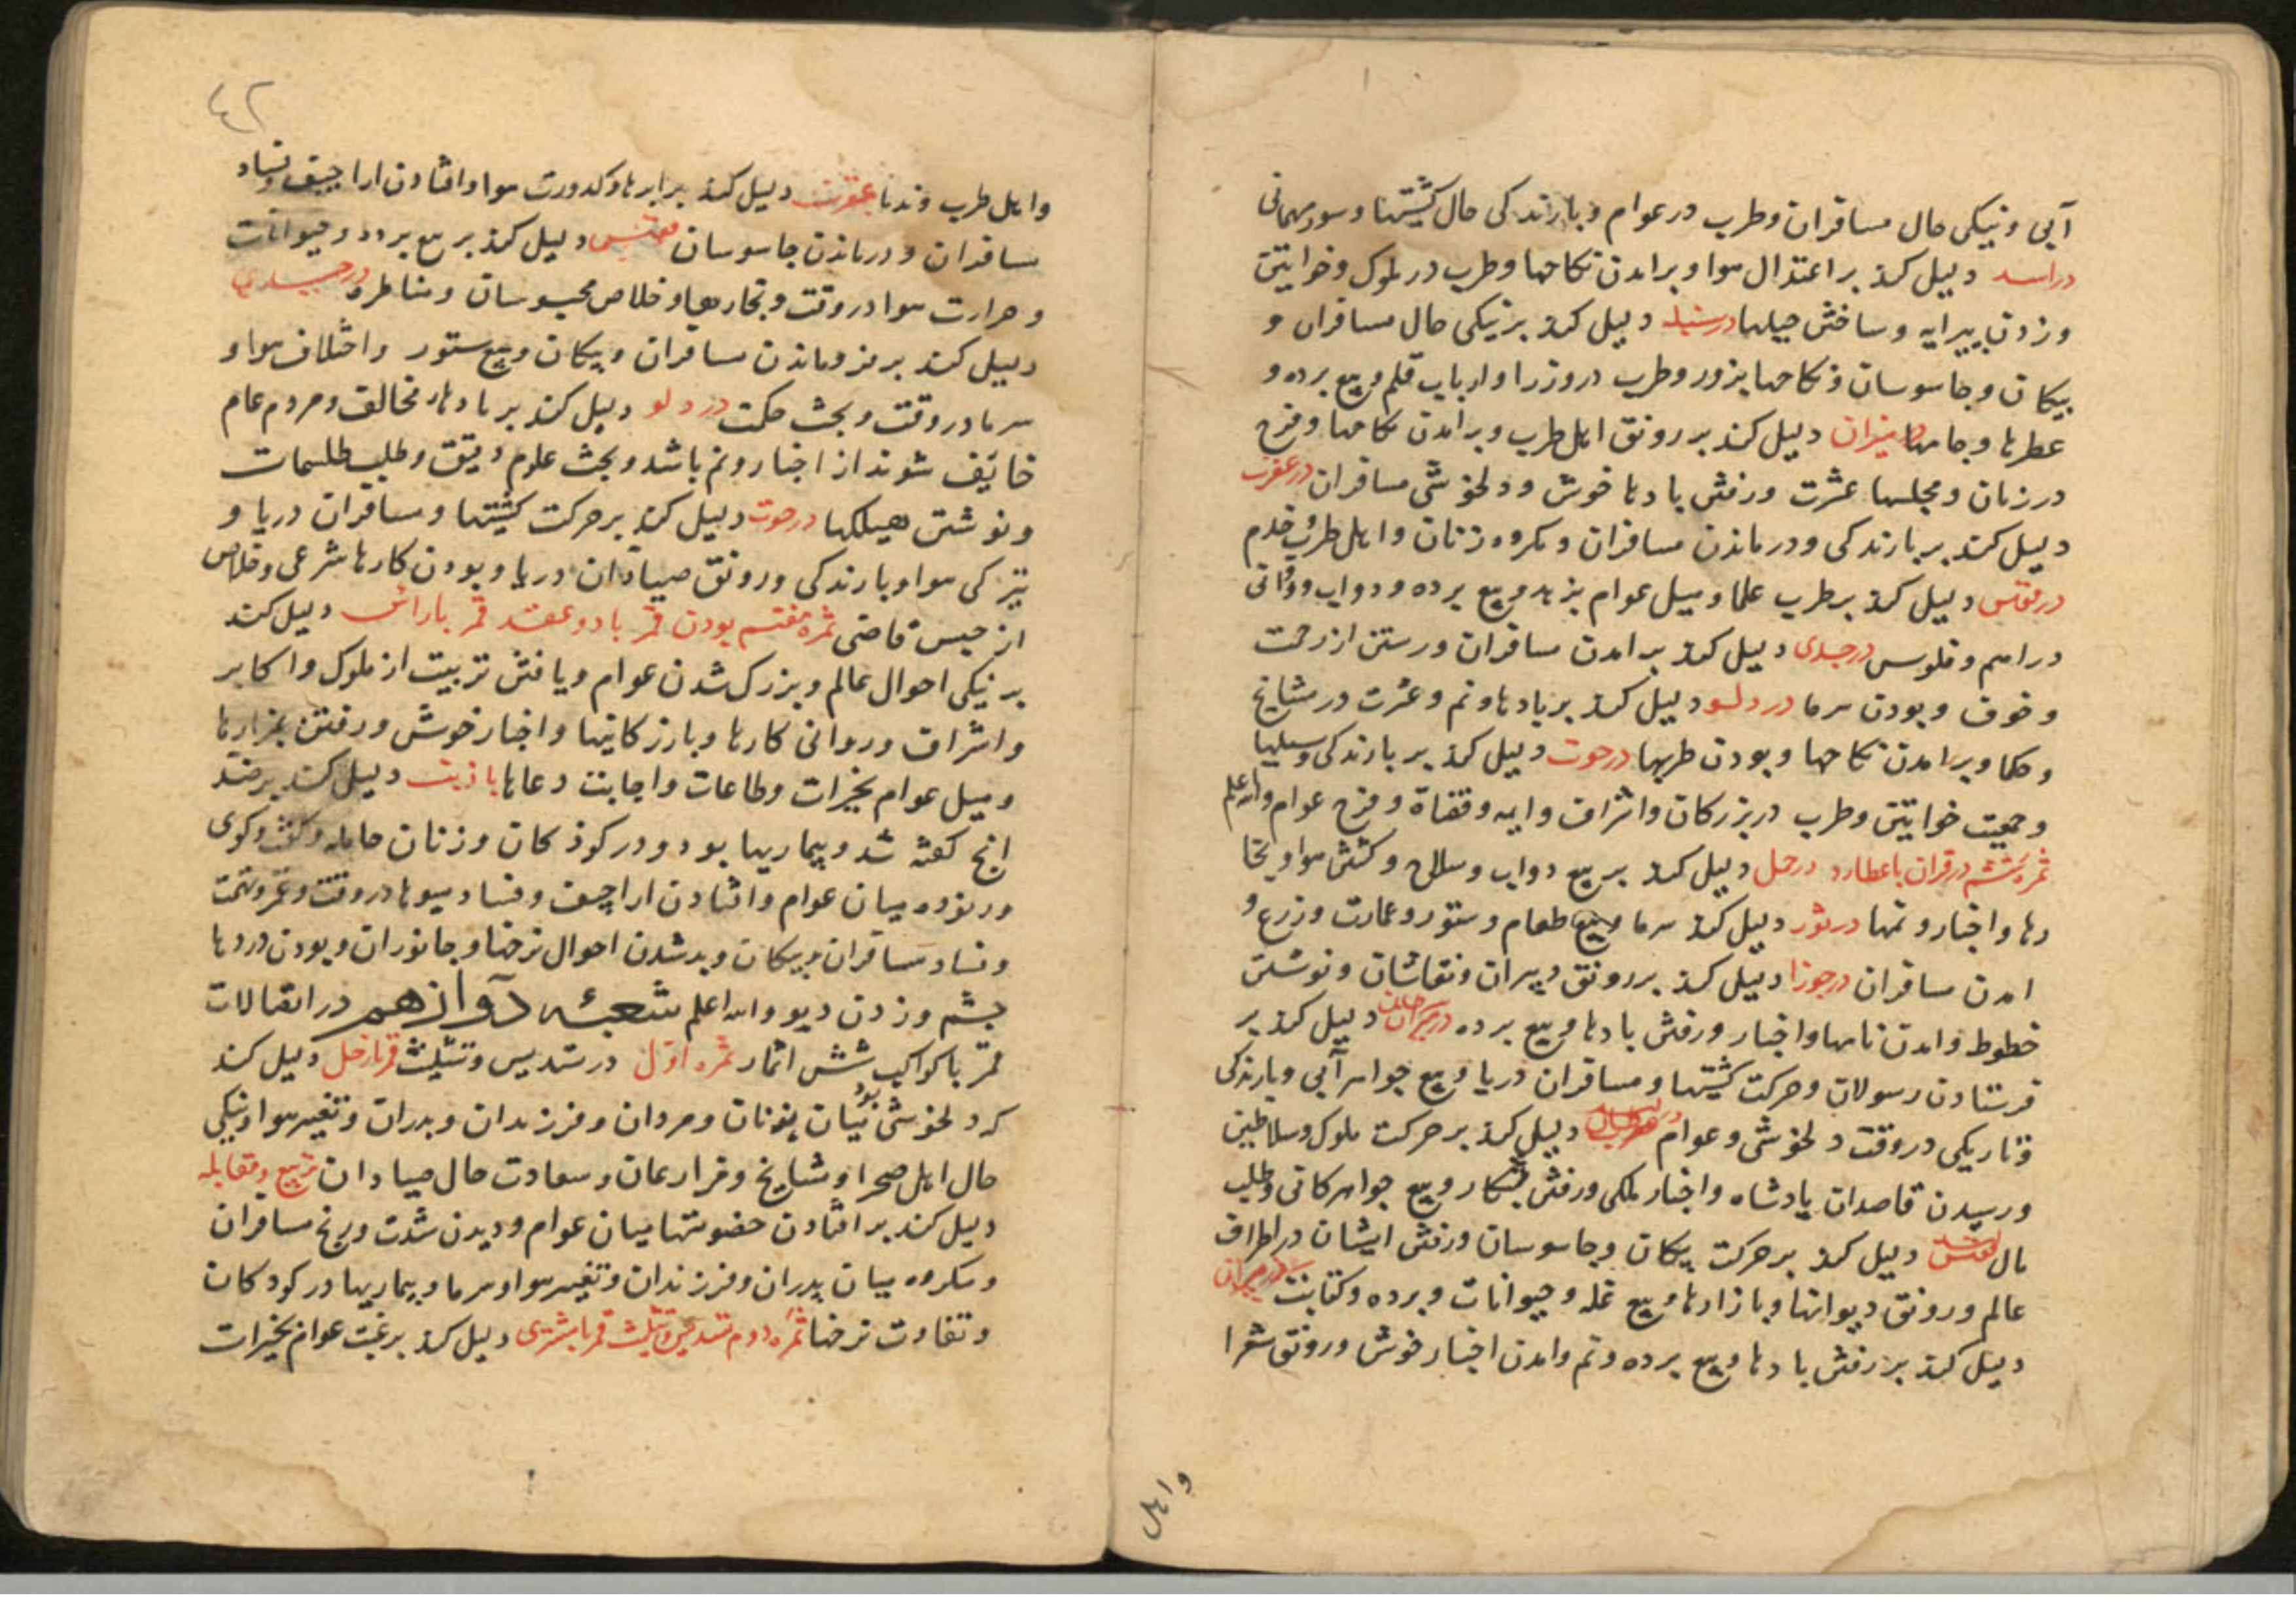 آبی و نیکی حال مسافران و طرب در عوام و بارندکی حال کشتیها و سود مهمانی
در اسد دلیل کند بر اعتدال هوا و برامدن نکاحها و طرب در ملوک و خواتین
وزدن پیرایه و ساختن حیلها در سنبله دلیل کند بر نیکی حال مسافران و
پیکان و جاسوسان و نکاحها بزور و طرب در وزرا و ارباب قلم و بیع برده و
عطرها و جامها در میزان دلیل کند بر رونق اهل طرب و برامدن نکاحها و فرح
در زنان و مجلسها عشرت و رفتن بادها خوش و دلخوشی مسافران در عقرب
دلیل کند بر بارندکی و درماندن مسافران و مکروه زنان و اهل طرب و خدم
در قوس دلیل کند بر طرب علما و میل عوام بزهد و بیع برده و دواب و روانی
دراهم و فلوس در جدی دلیل کند برامدن مسافران و رستن از زحمت
و خوف و بودن سرما در دلو دلیل کند بر بادها و نم و عشرت در مشایخ
و حکما و برامدن نکاحها و بودن طربها در حوت دلیل کند بر بارندکی و سیلها
و جمعیت خواتین و طرب در بزرکان و اشراف و ایمه و قضاة و فرح عوام والله اعلم
ثمره ششم در قران با عطارد در حمل دلیل کند بر بیع دواب و سلاح و کشش هوا و بخا
رها و اخبار و نمها در ثور دلیل کند سرما و بیع طعام و ستور و عمارت و زرع و
امدن مسافران در جوزا دلیل کند بر رونق دبیران و نقاشان و نوشتن
خطوط و امدن نامها و اخبار و رفتن بادها و بیع برده در سرطان دلیل کند بر
فرستادن رسولان و حرکت کشتیها و مسافران دریا و بیع جواهر آبی و بارندکی
و تاریکی در وقت دلخوشی و عوام در اسد دلیل کند بر حرکت ملوک و سلاطین
و رسیدن قاصدان پادشاه و اخبار ملکی و رفتن بشکار و بیع جواهر کانی و طلب
مال دلیل کند بر حرکت پیکان و جاسوسان و رفتن ایشان در اطراف
عالم و رونق دیوانها و بازارها و بیع غله و حیوانات و برده و کتابت در میزان
دلیل کند بر رفتن بادها و بیع برده و نم و امدن اخبار خوش و رونق شعرا
و اهل
۴۲
و اهل طرب و ندما عقرب دلیل کند بر ابرها و کدورت هوا و افتادن اراجیف و فساد
مسافران و درماندن جاسوسان دلیل کند بر بیع برده و حیوانات
و حرارت هوا در وقت و بخارها و خلاص محبوسان و مناظره در جدی
دلیل کند بر فروماندن مسافران و پیکان و بیع ستور و اختلاف هوا و
سرما در وقت و بحث حکمت در دلو دلیل کند بر بادهاء مخالف و مردم عام
خایف شوند از اخبار و نم باشد و بحث علوم دقیق و طلب طلسمات
و نوشتن هیکلها در حوت دلیل کند بر حرکت کشتیها و مسافران دریا و
تیزکی هوا و بارندکی و رونق صیادان دریا و بودن کارها شرعی و خلاص
از حبس قاضی ثمره هفتم بودن قمر با دو عقد قمر با راس دلیل کند
بر نیکی احوال عالم و بزرک شدن عوام و یافتن تربیت از ملوک و اکابر
و اشراف و روانی کارها و بازرکانیها و اخبار خوش و رفتن بمزارها
و میل عوام بخیرات و طاعات و اجابت دعاها با ذنب دلیل کند بر ضد
انچ کفته شد و بیماریها بود و در کودکان و زنان حامله و کفت و کوی
دروزه میان عوام و افتادن اراجیف و فساد میوها در وقت و غمز و تهمت
و فساد مسافران و پیکان و بد شدن احوال نرخها و جانوران و بودن دردها
چشم و زدن دیو والله اعلم شعبه دوازدهم در اتصالات
قمر با کواکب شش اثمار ثمره اول در تسدیس و تثلیث قمر با زحل دلیل کند
که دلخوشی بود میان زنان و مردان و فرزندان و پدران و تغییر هوا و نیکی
حال اهل صحرا و مشایخ و مزارعان و سعادت حال صیادان تربیع و مقابله
دلیل کند بر افتادن خصومتها میان عوام و دیدن شدت و رنج مسافران
و مکروه میان پدران و فرزندان و تغییر هوا و سرما و بیماریها در کودکان
و تفاوت نرخها ثمره دوم تسدیس و تثلیث قمر با مشتری دلیل کند بر رغبت عوام بخیرات